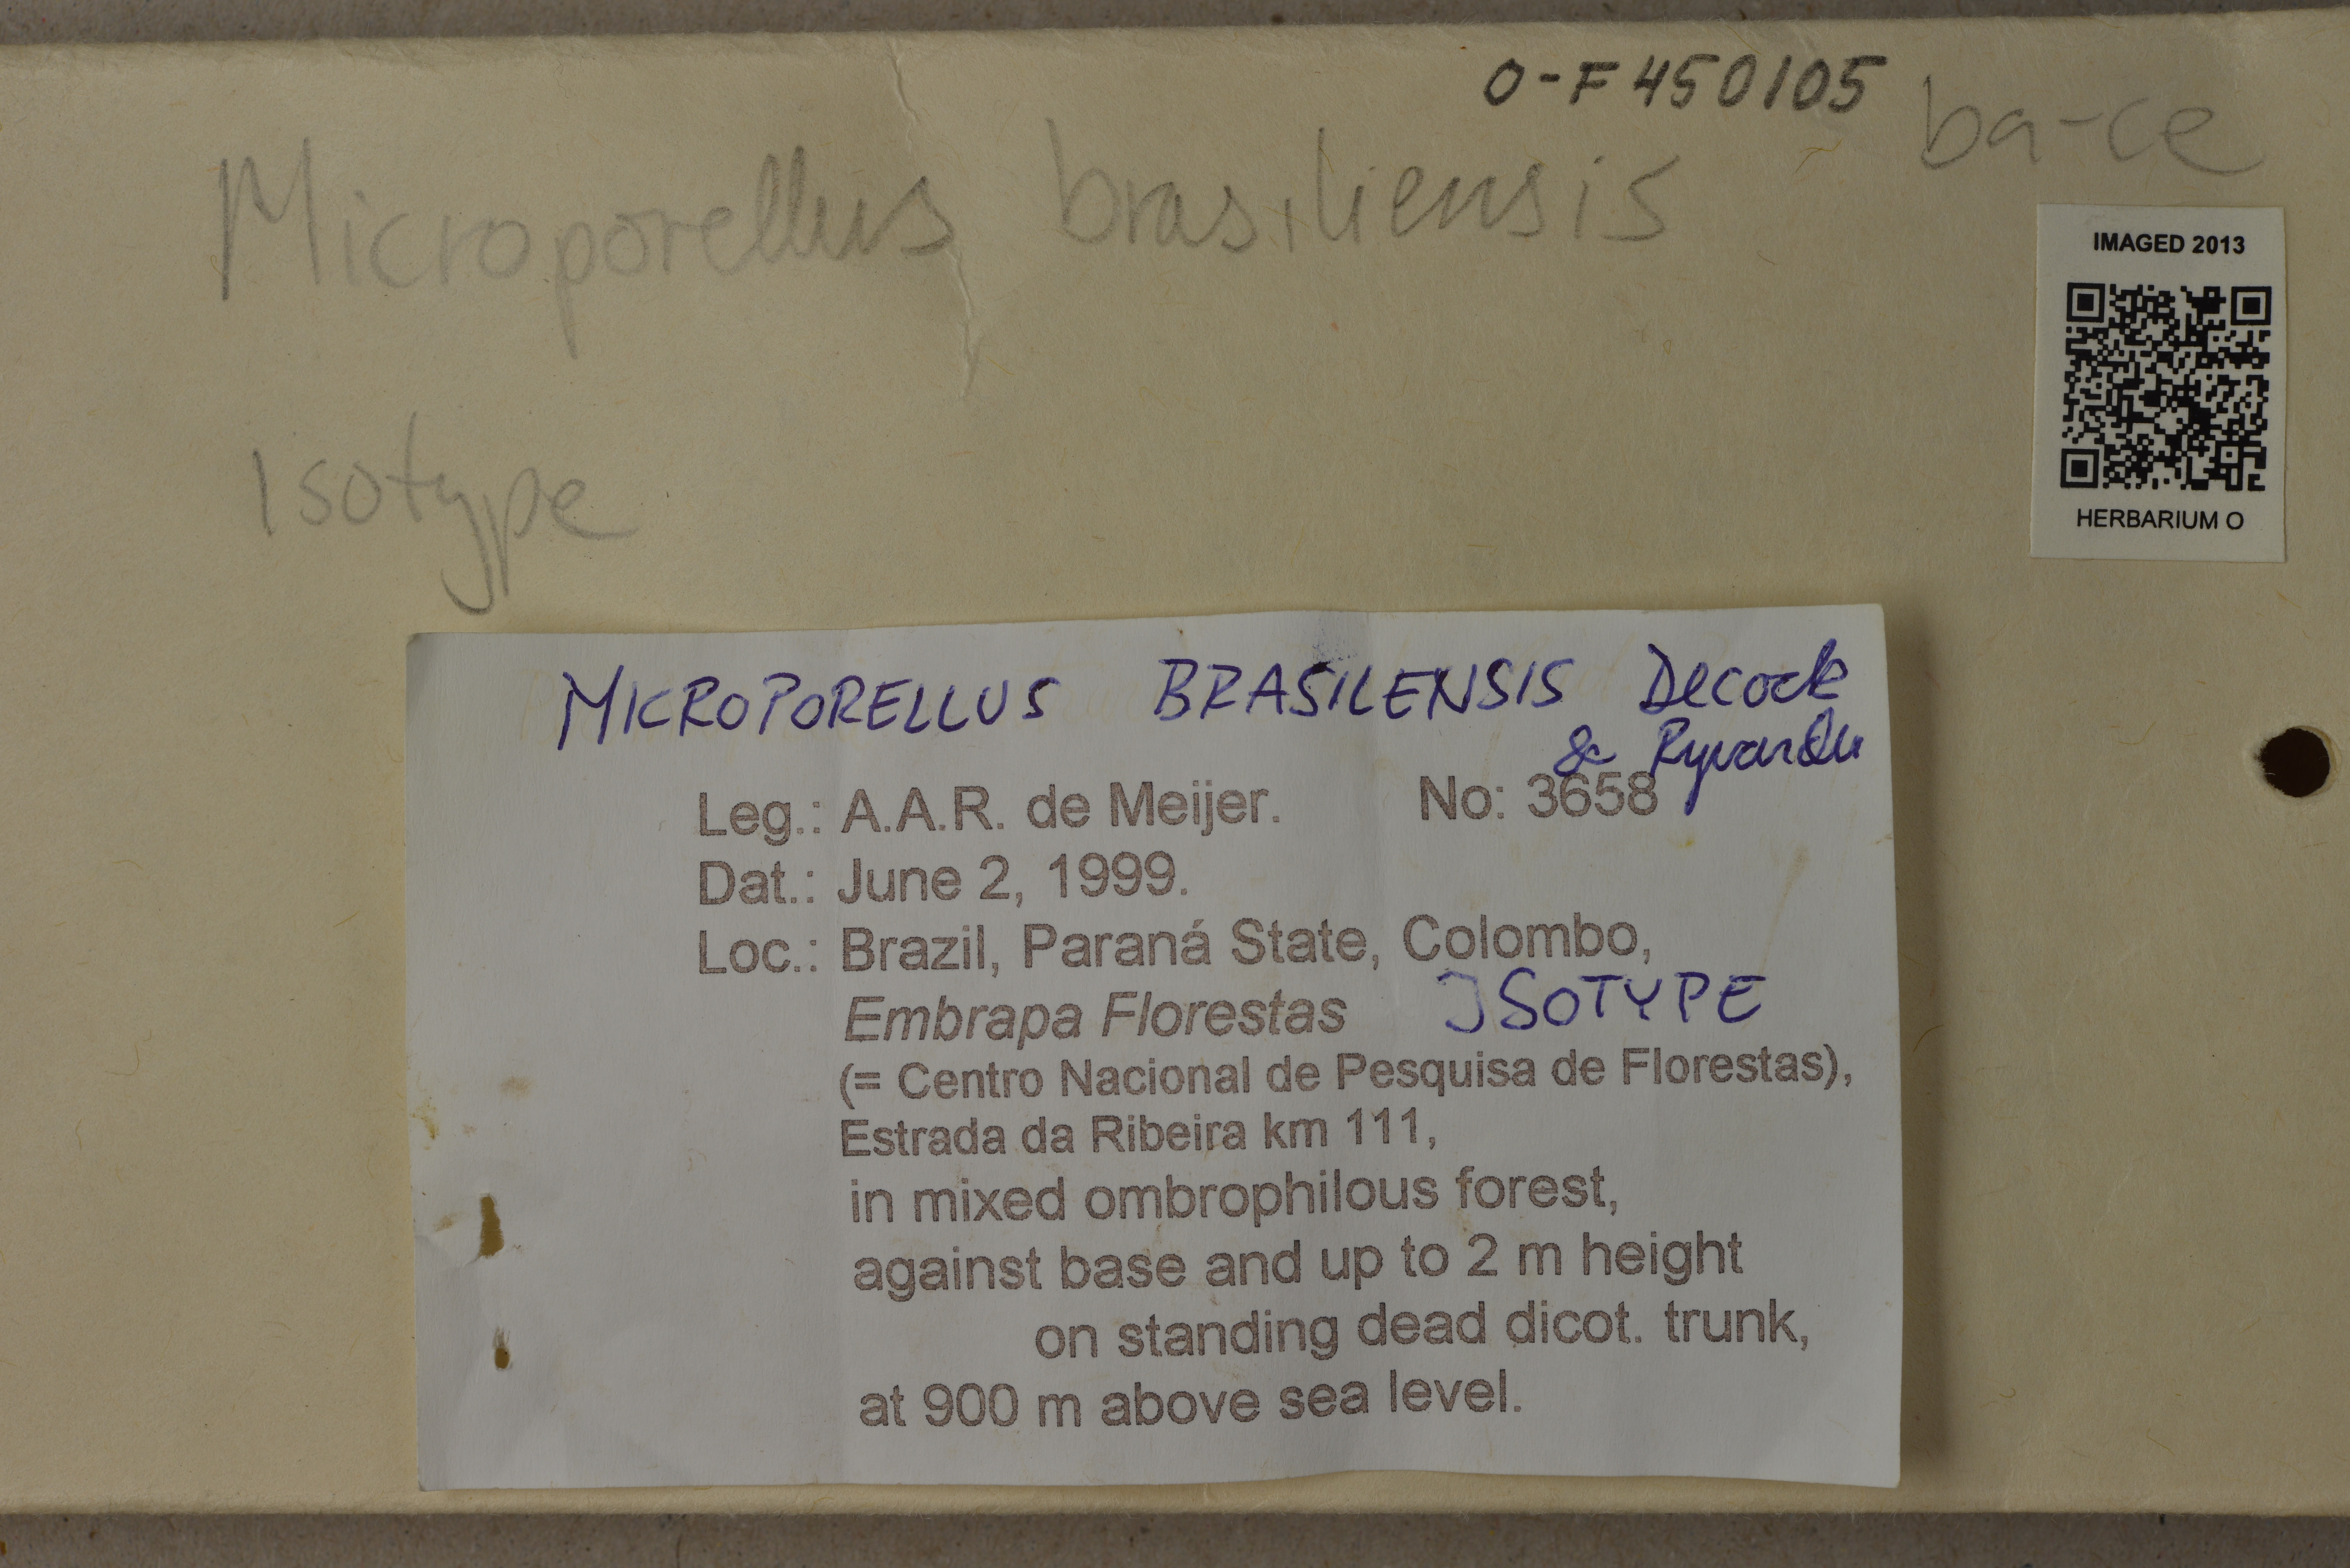 O-F450105
ba-ce
Microporellus brasiliensis
IMAGED 2013
HERBARIUM O
Isotype
MICROPORELLUS BRASILENSIS Decock
& Ryvarden
Leg.: A.A.R. de Meijer. No: 3658
Dat.: June 2, 1999.
Loc.: Brazil, Paraná State, Colombo,
Embrapa Florestas ISOTYPE
(= Centro Nacional de Pesquisa de Florestas),
Estrada da Ribeira km 111,
in mixed ombrophilous forest,
against base and up to 2 m height
on standing dead dicot. trunk,
at 900 m above sea level.